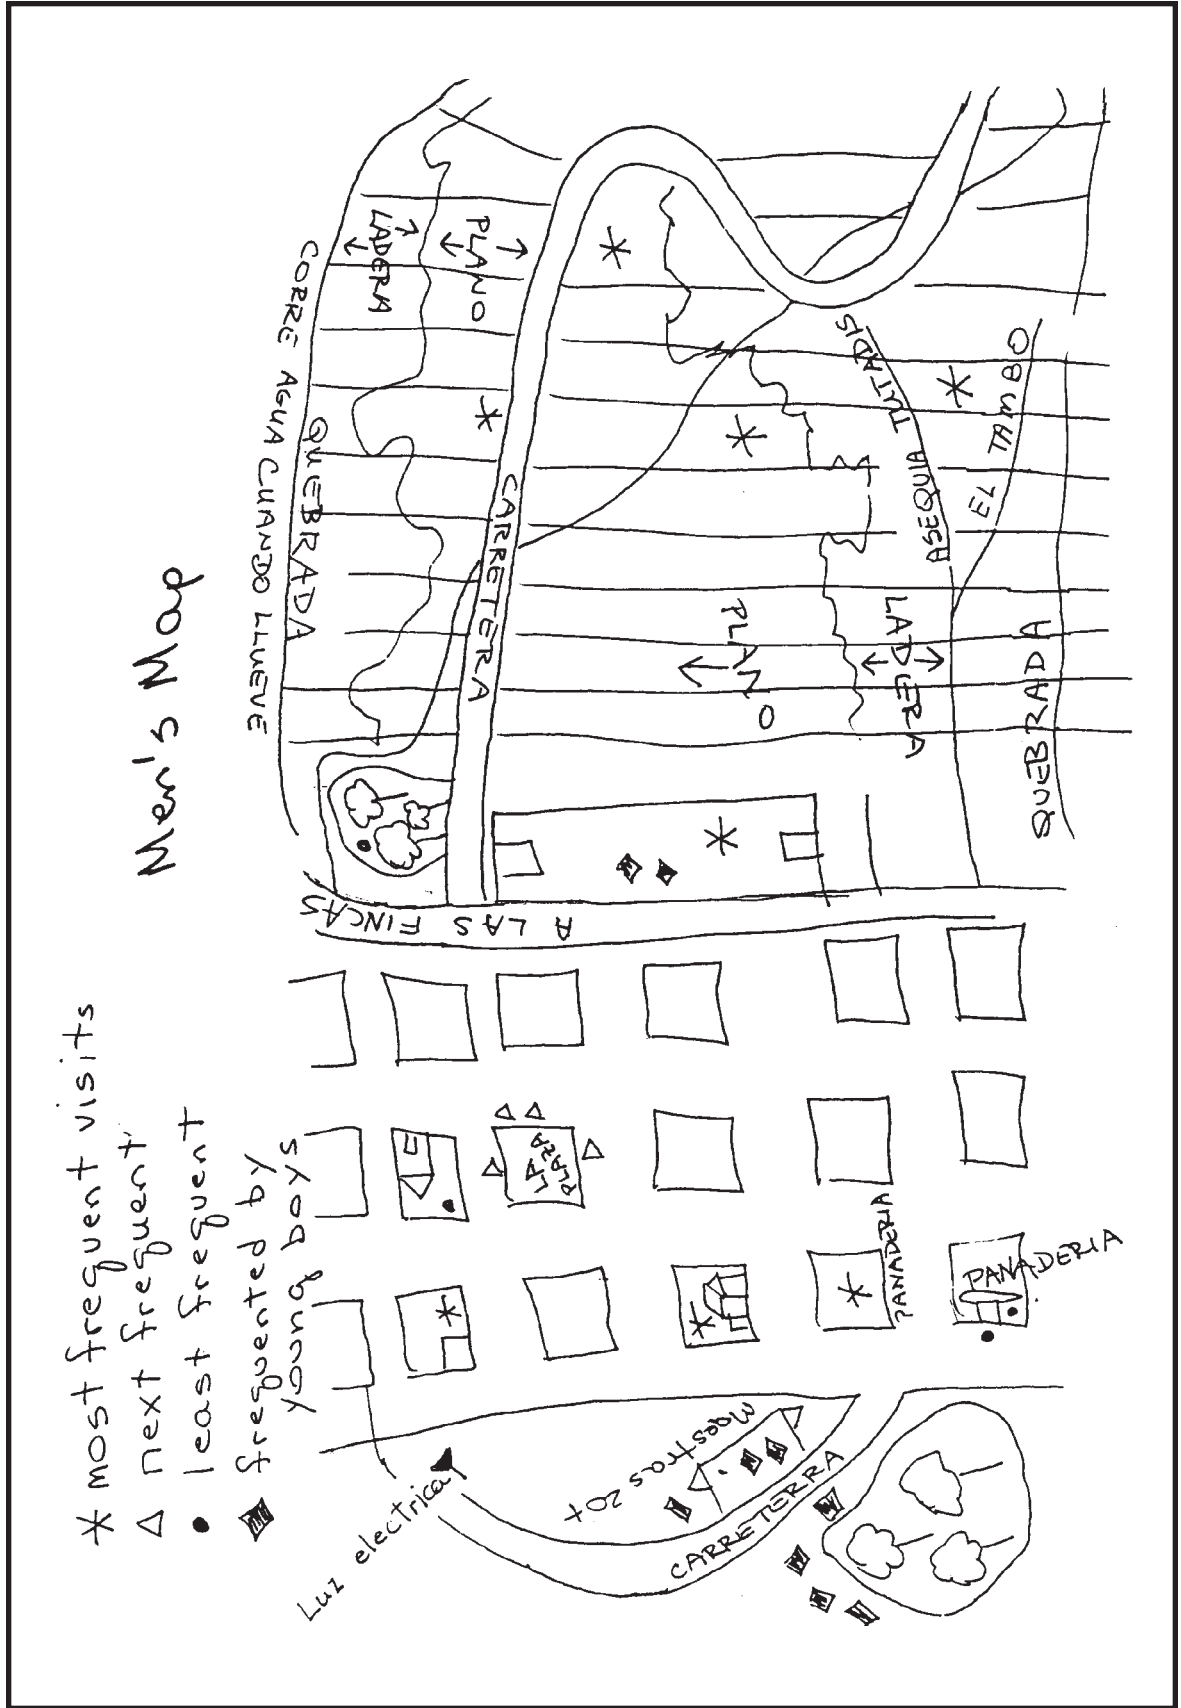 Men's Map
* most frequent visits
△ next frequent
● least frequent
frequented by
young boys
CORRE AGUA CUANDO LLUEVE
QUEBRADA
LADERA
PLANO
CARRETERA
PLANO
LADERA
ASEQUIA TUITADIS
EL TAMBO
QUEBRADA
A LAS FINCAS
LA
PLAZA
PANADERIA
PANADERIA
Luz electrica
Maestras 20+
CARRETERRA